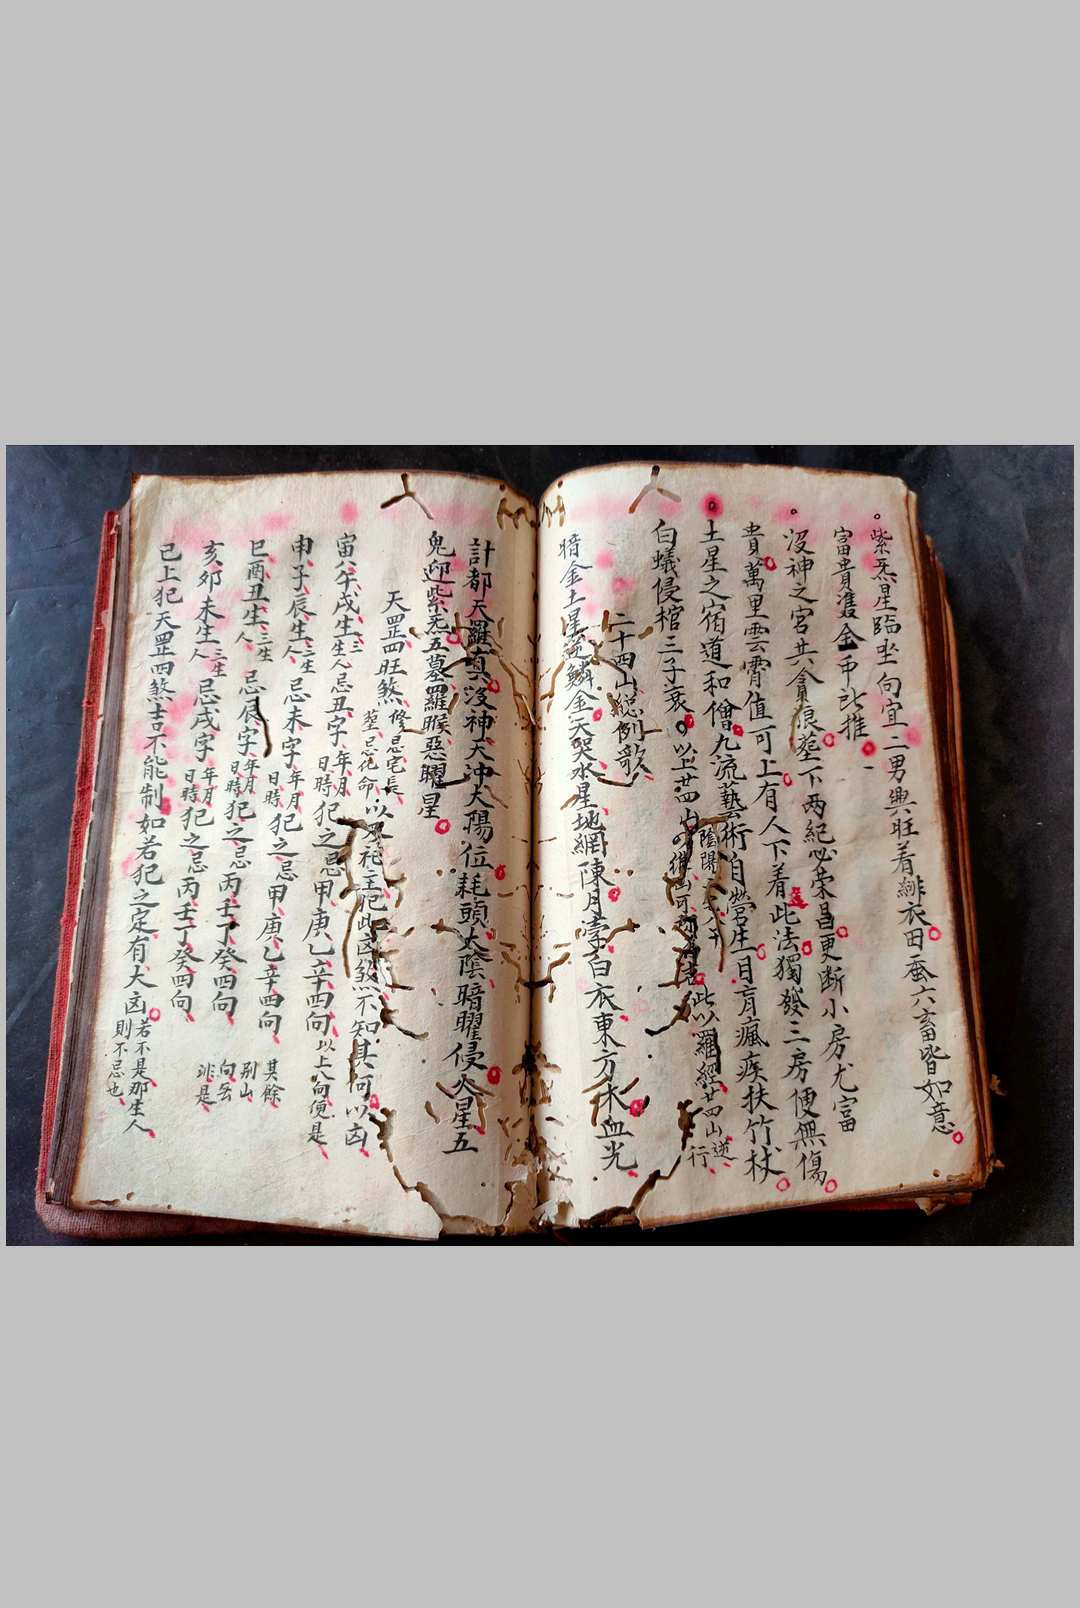 紫炁星臨坐向宜二男興旺着緋衣田蚕六畜皆如意
富貴進金市此推
没神之宮共貪狼塟下两紀必荣昌更断小房尤富
貴萬里雲霄值可上有人下着此法獨發三房便無傷
土星之宿道和僧九流藝術自營生目肓瘋疾扶竹杖
白蟻侵棺三子衰 以上廿四山 陰陽 此以羅經廿四山逆行
二十四山総例歌
暗金土星逆鱗金天哭水星地網陳月孛白衣東方木血光
計都天羅真沒神天沖太陽位耗頭太陰暗曜侵火星五
鬼迎紫炁五墓羅睺惡曜星
天罡四旺煞 修忌宅長 塟忌化命 犯此凶煞不知其何以凶
寅午戌生人三生忌丑字年月日時犯之忌甲庚乙辛四向以上人向便是
申子辰生人三生忌未字年月日時犯之忌甲庚乙辛四向
巳酉丑生人三生忌辰字年月日時犯之忌丙壬丁癸四向 其餘別山向吉
亥卯未生人三生忌戌字年月日時犯之忌丙壬丁癸四向
已上犯天罡四煞吉不能制如若犯之定有大凶若不是那生人則不忌也